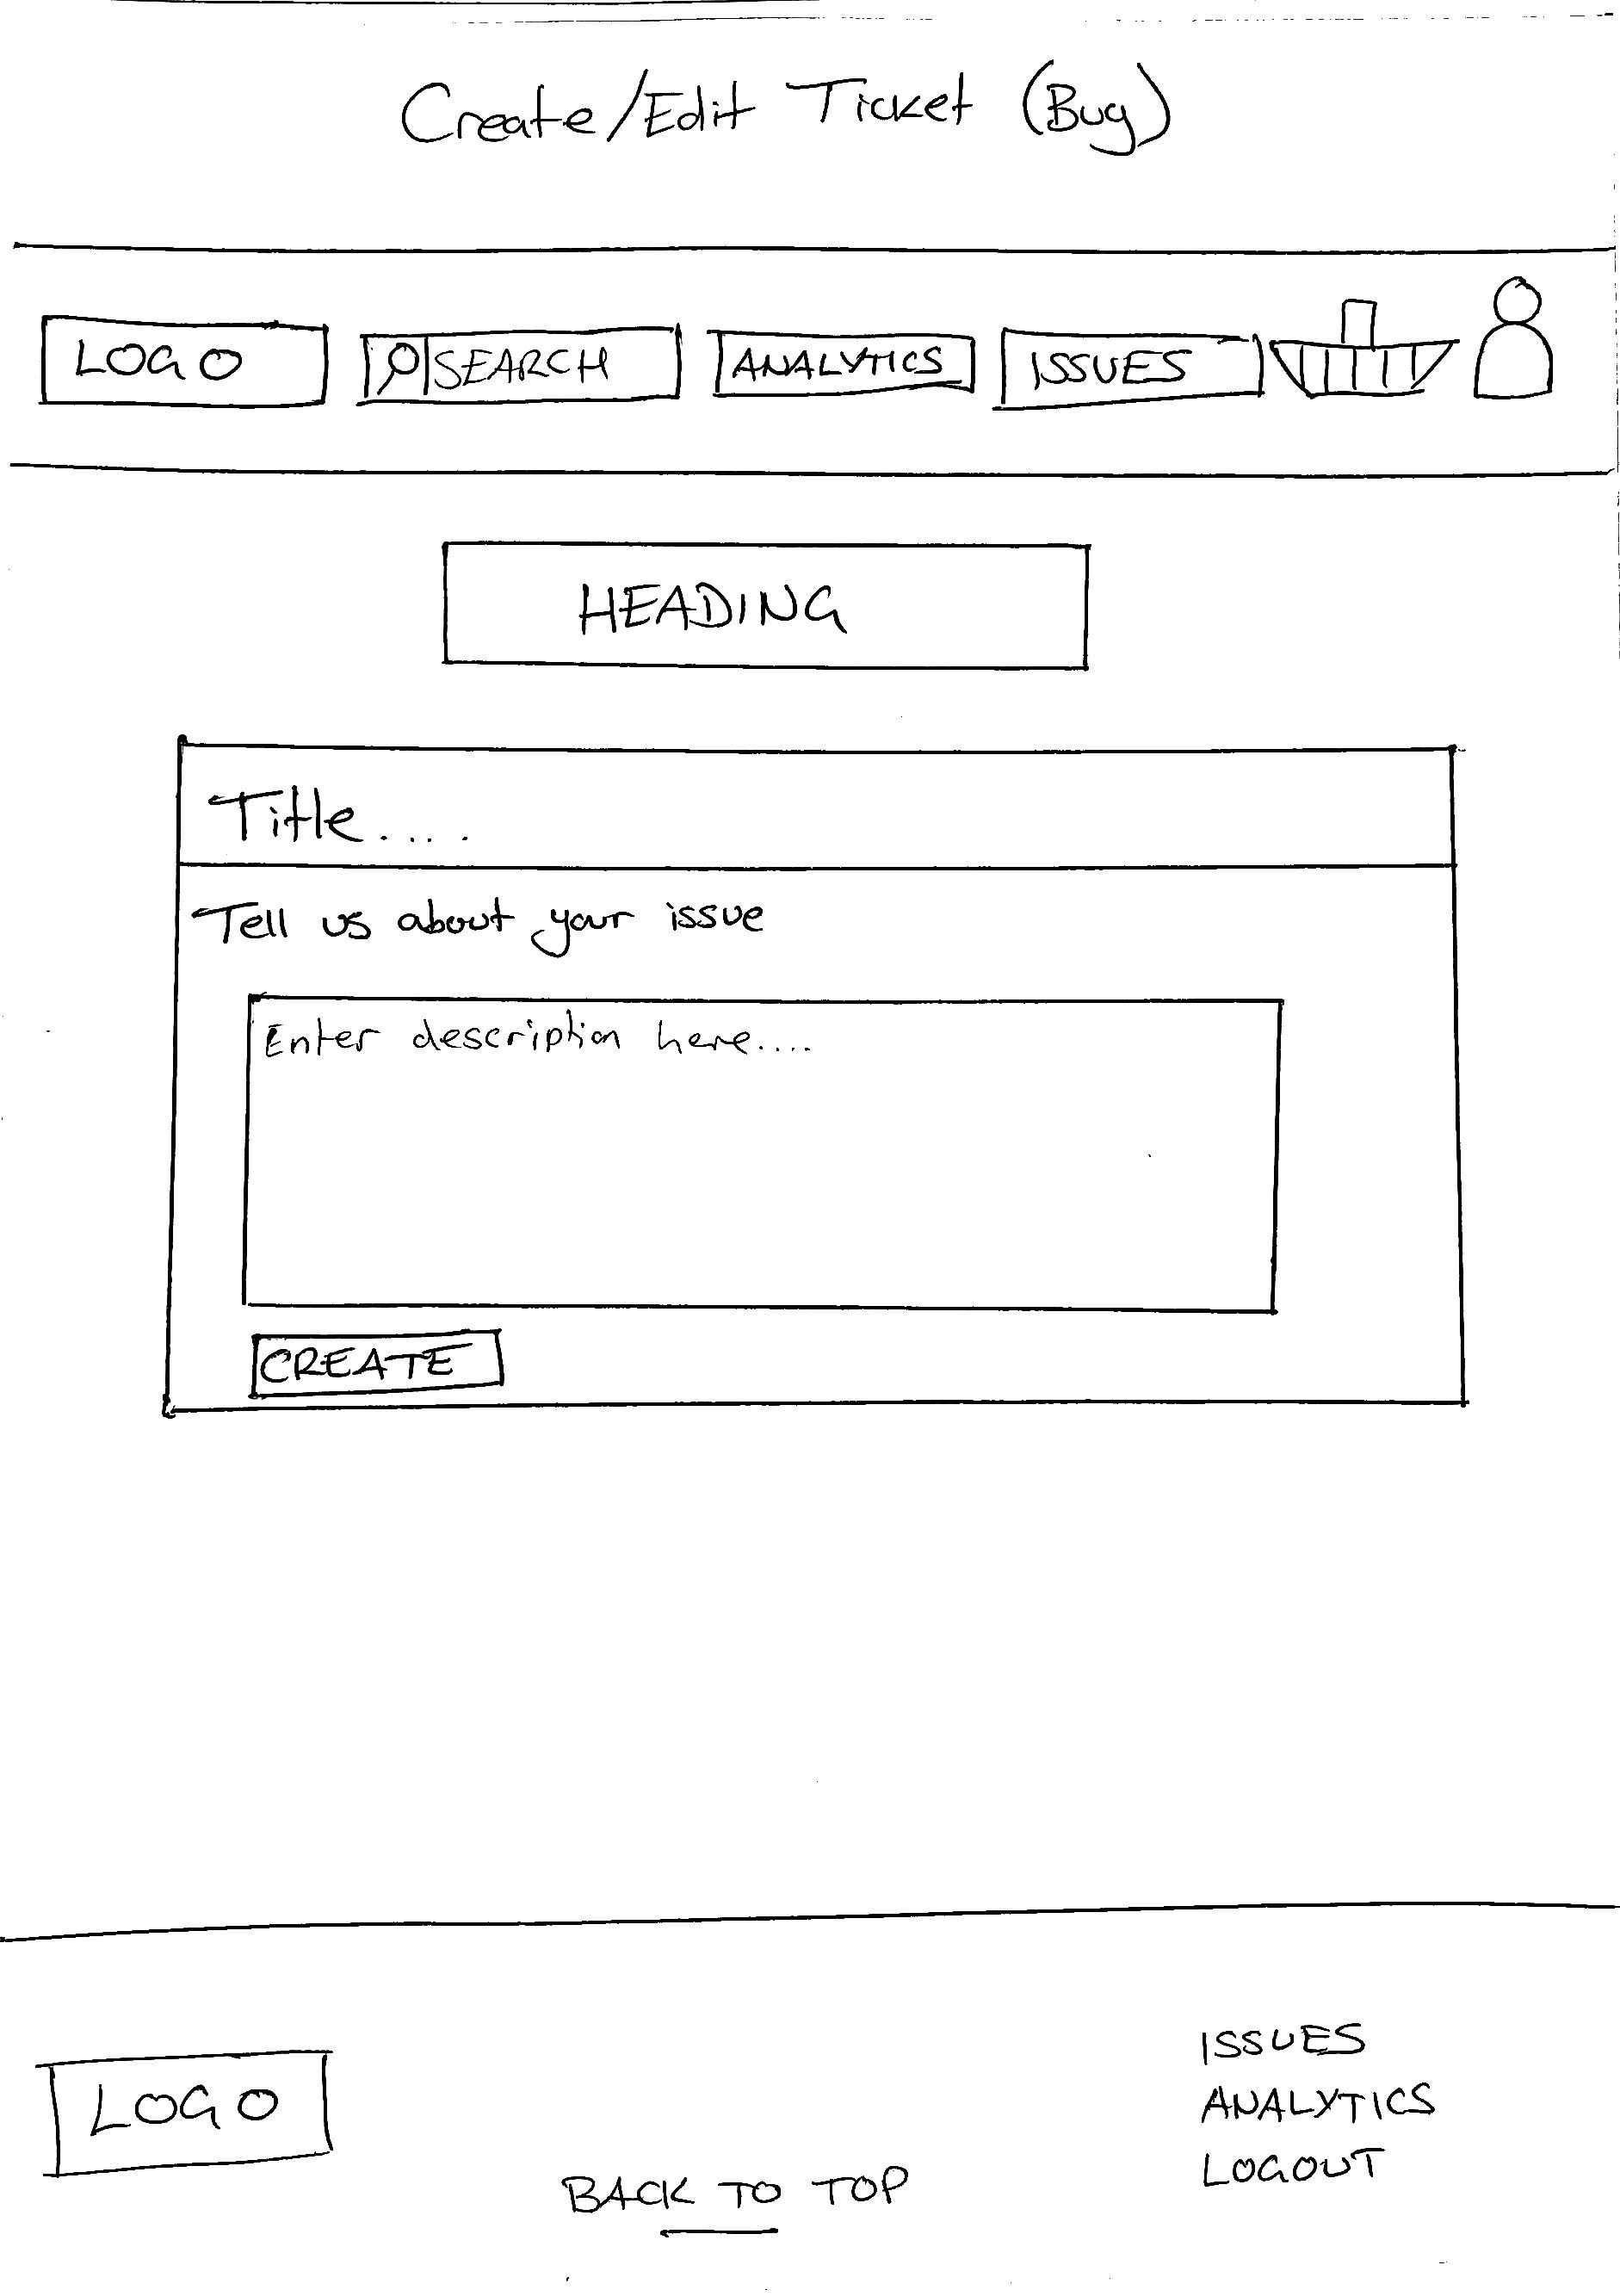 Create/Edit Ticket (Bug)
LOGO SEARCH ANALYTICS ISSUES
HEADING
Title....
Tell us about your issue
Enter description here....
CREATE
LOGO
BACK TO TOP
ISSUES
ANALYTICS
LOGOUT